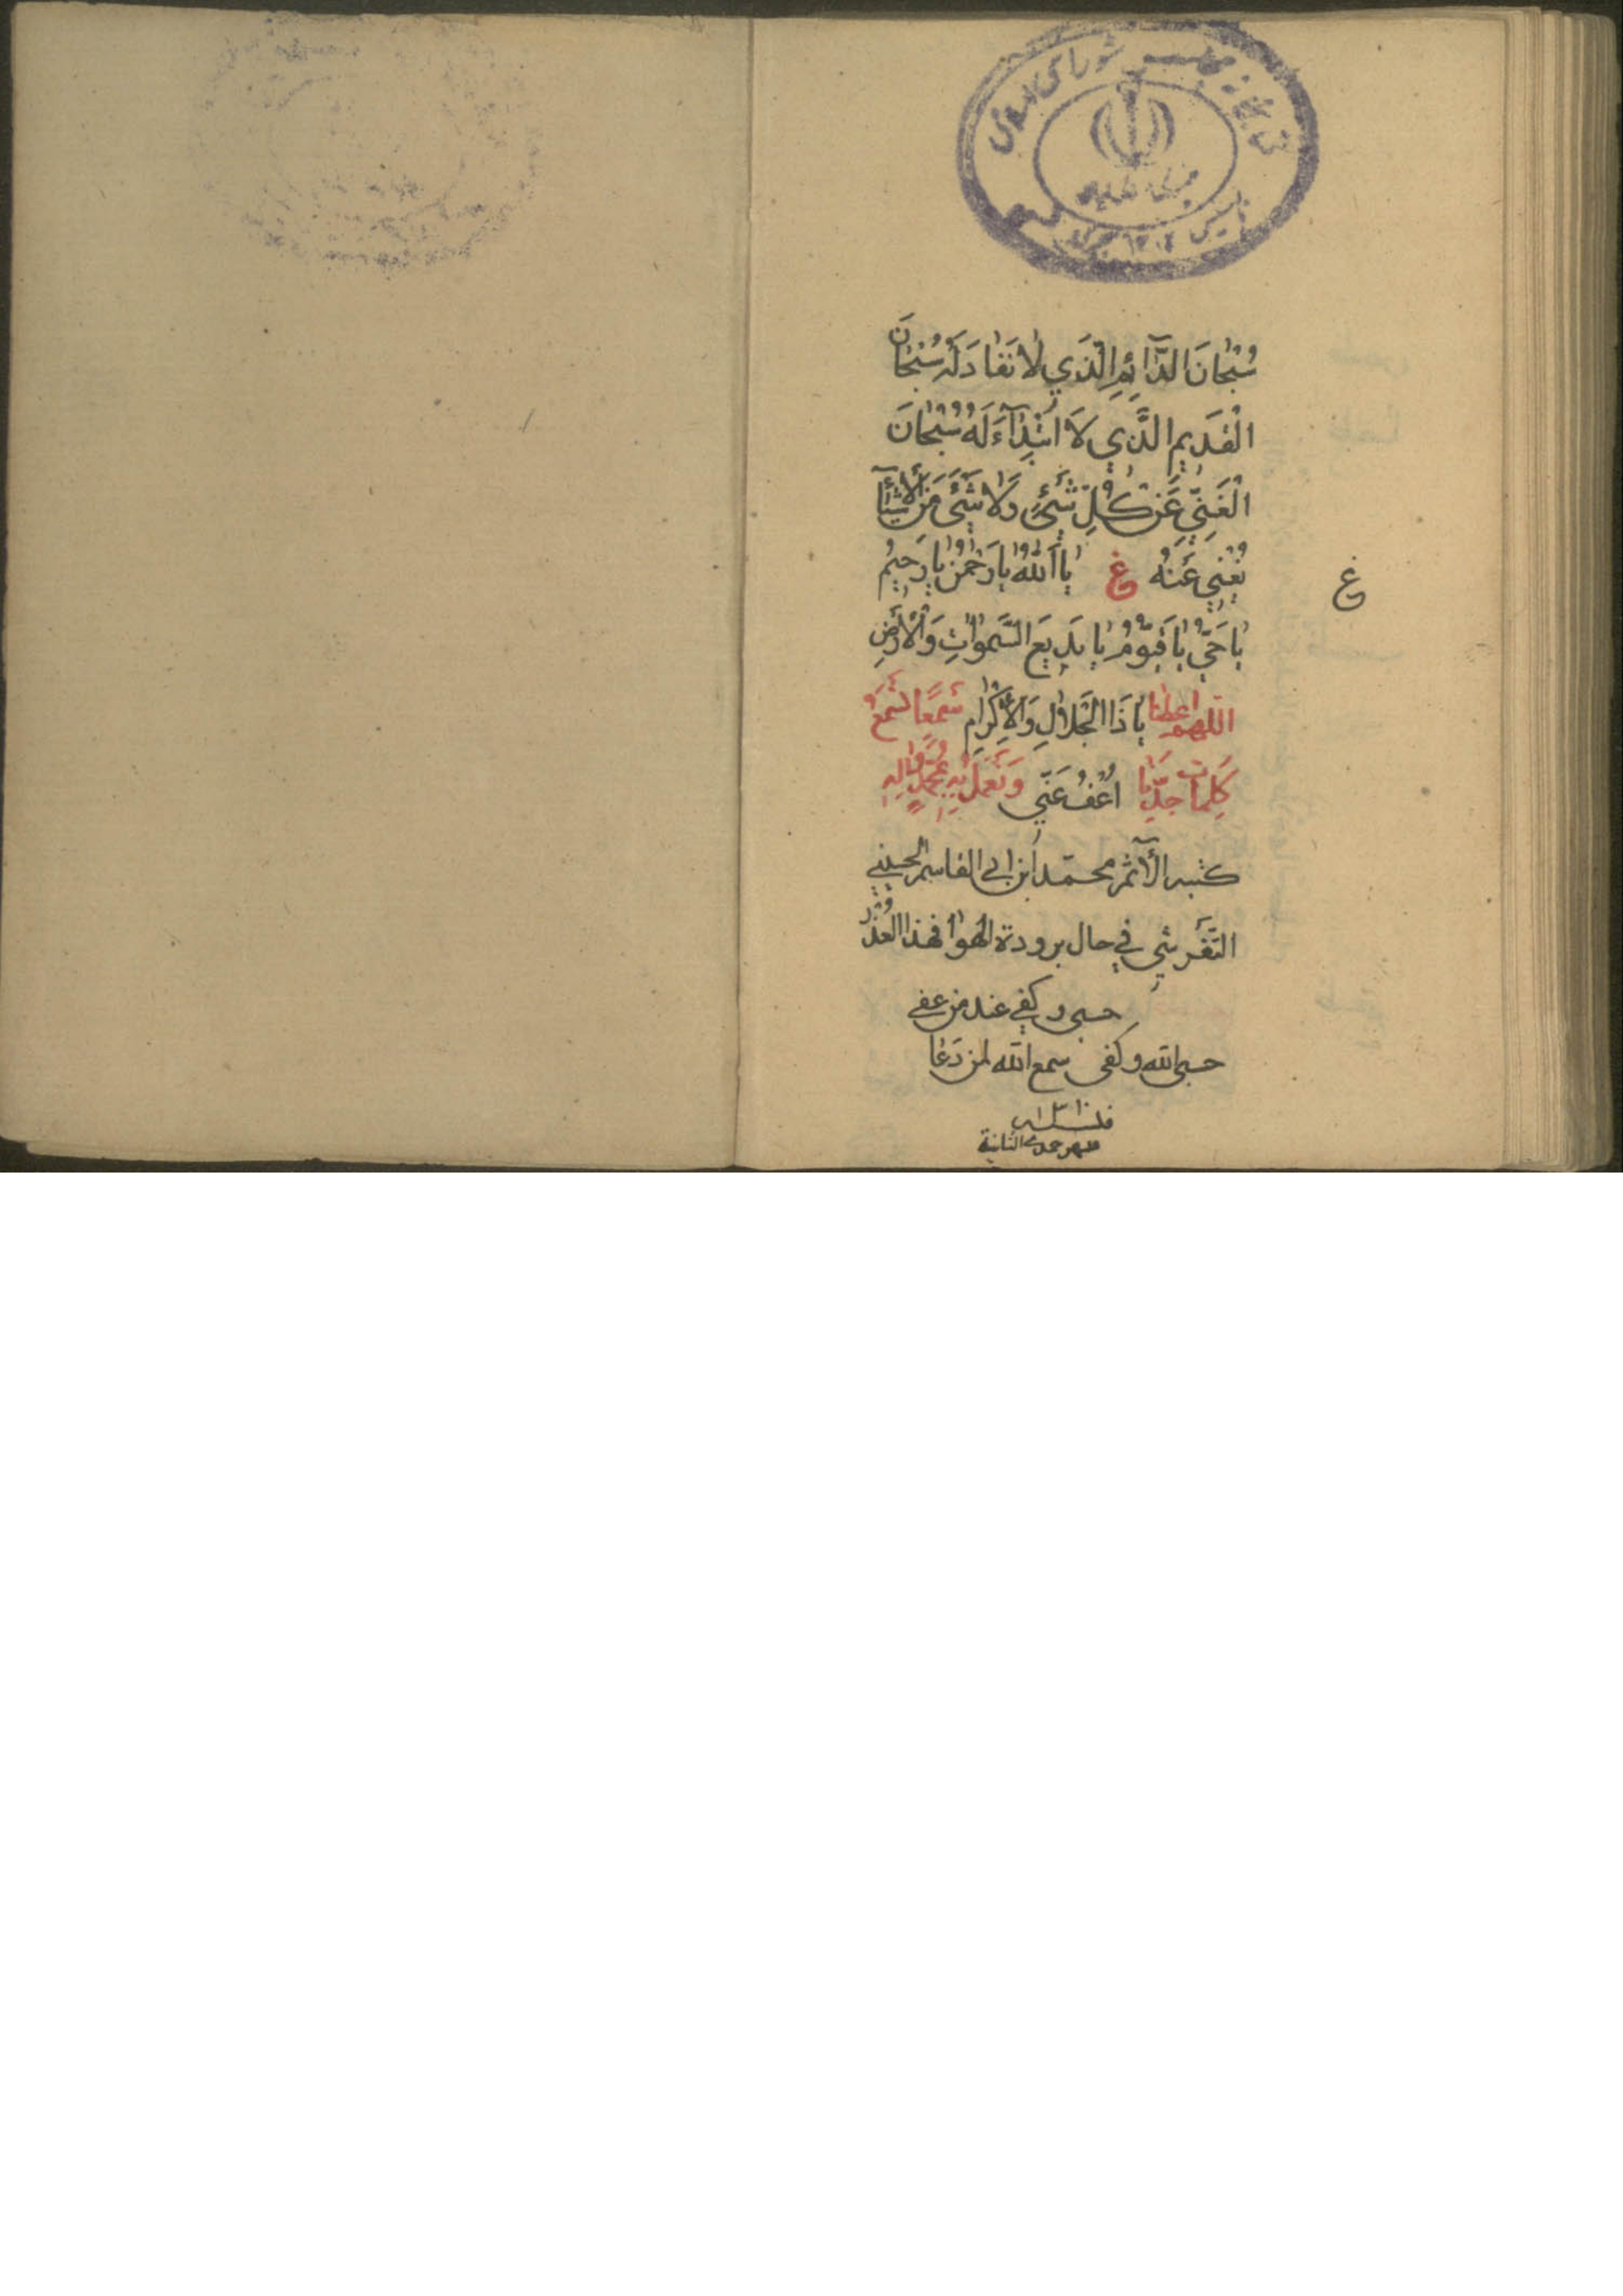 کتابخانه مجلس شورای اسلامی
تأسیس ۱۳۰۲
سُبْحانَ الدَّآئِمِ الَّذي لا نَفادَ لَهُ سُبْحانَ
الْقَديمِ الَّذي لَا ابْتِدآءَ لَهُ سُبْحانَ
الْغَنِيِّ عَنْ كُلِّ شَيْءٍ وَلا شَيْءَ مِنَ الْأَشْيآءِ
يُغْني عَنْهُ غ يا اَللهُ يا رَحْمنُ يا رَحيمُ
غ
يا حَيُّ يا قَيُّومُ يا بَديعَ السَّمواتِ وَالْأَرْضِ
اللهم اعطنا يا ذَا الْجَلالِ وَالْاِكْرامِ سَمْعًا لِنَسْمَعَ
كَلِماتِ جَدِّنا اعْفُ عَنّي وَنَعْمَلَ بِهِ بِمُحَمَّدٍ وَالِهِ
كتبه الآثم محمّد ابن ابي القاسم الحسيني
التَّفْرشي في حال برودة الهوا فهذا العُذْرُ
حسبي وكفي عند من عفي
حسبي الله وكفى سمع الله لمن دَعا
شهر جمدي الثانية